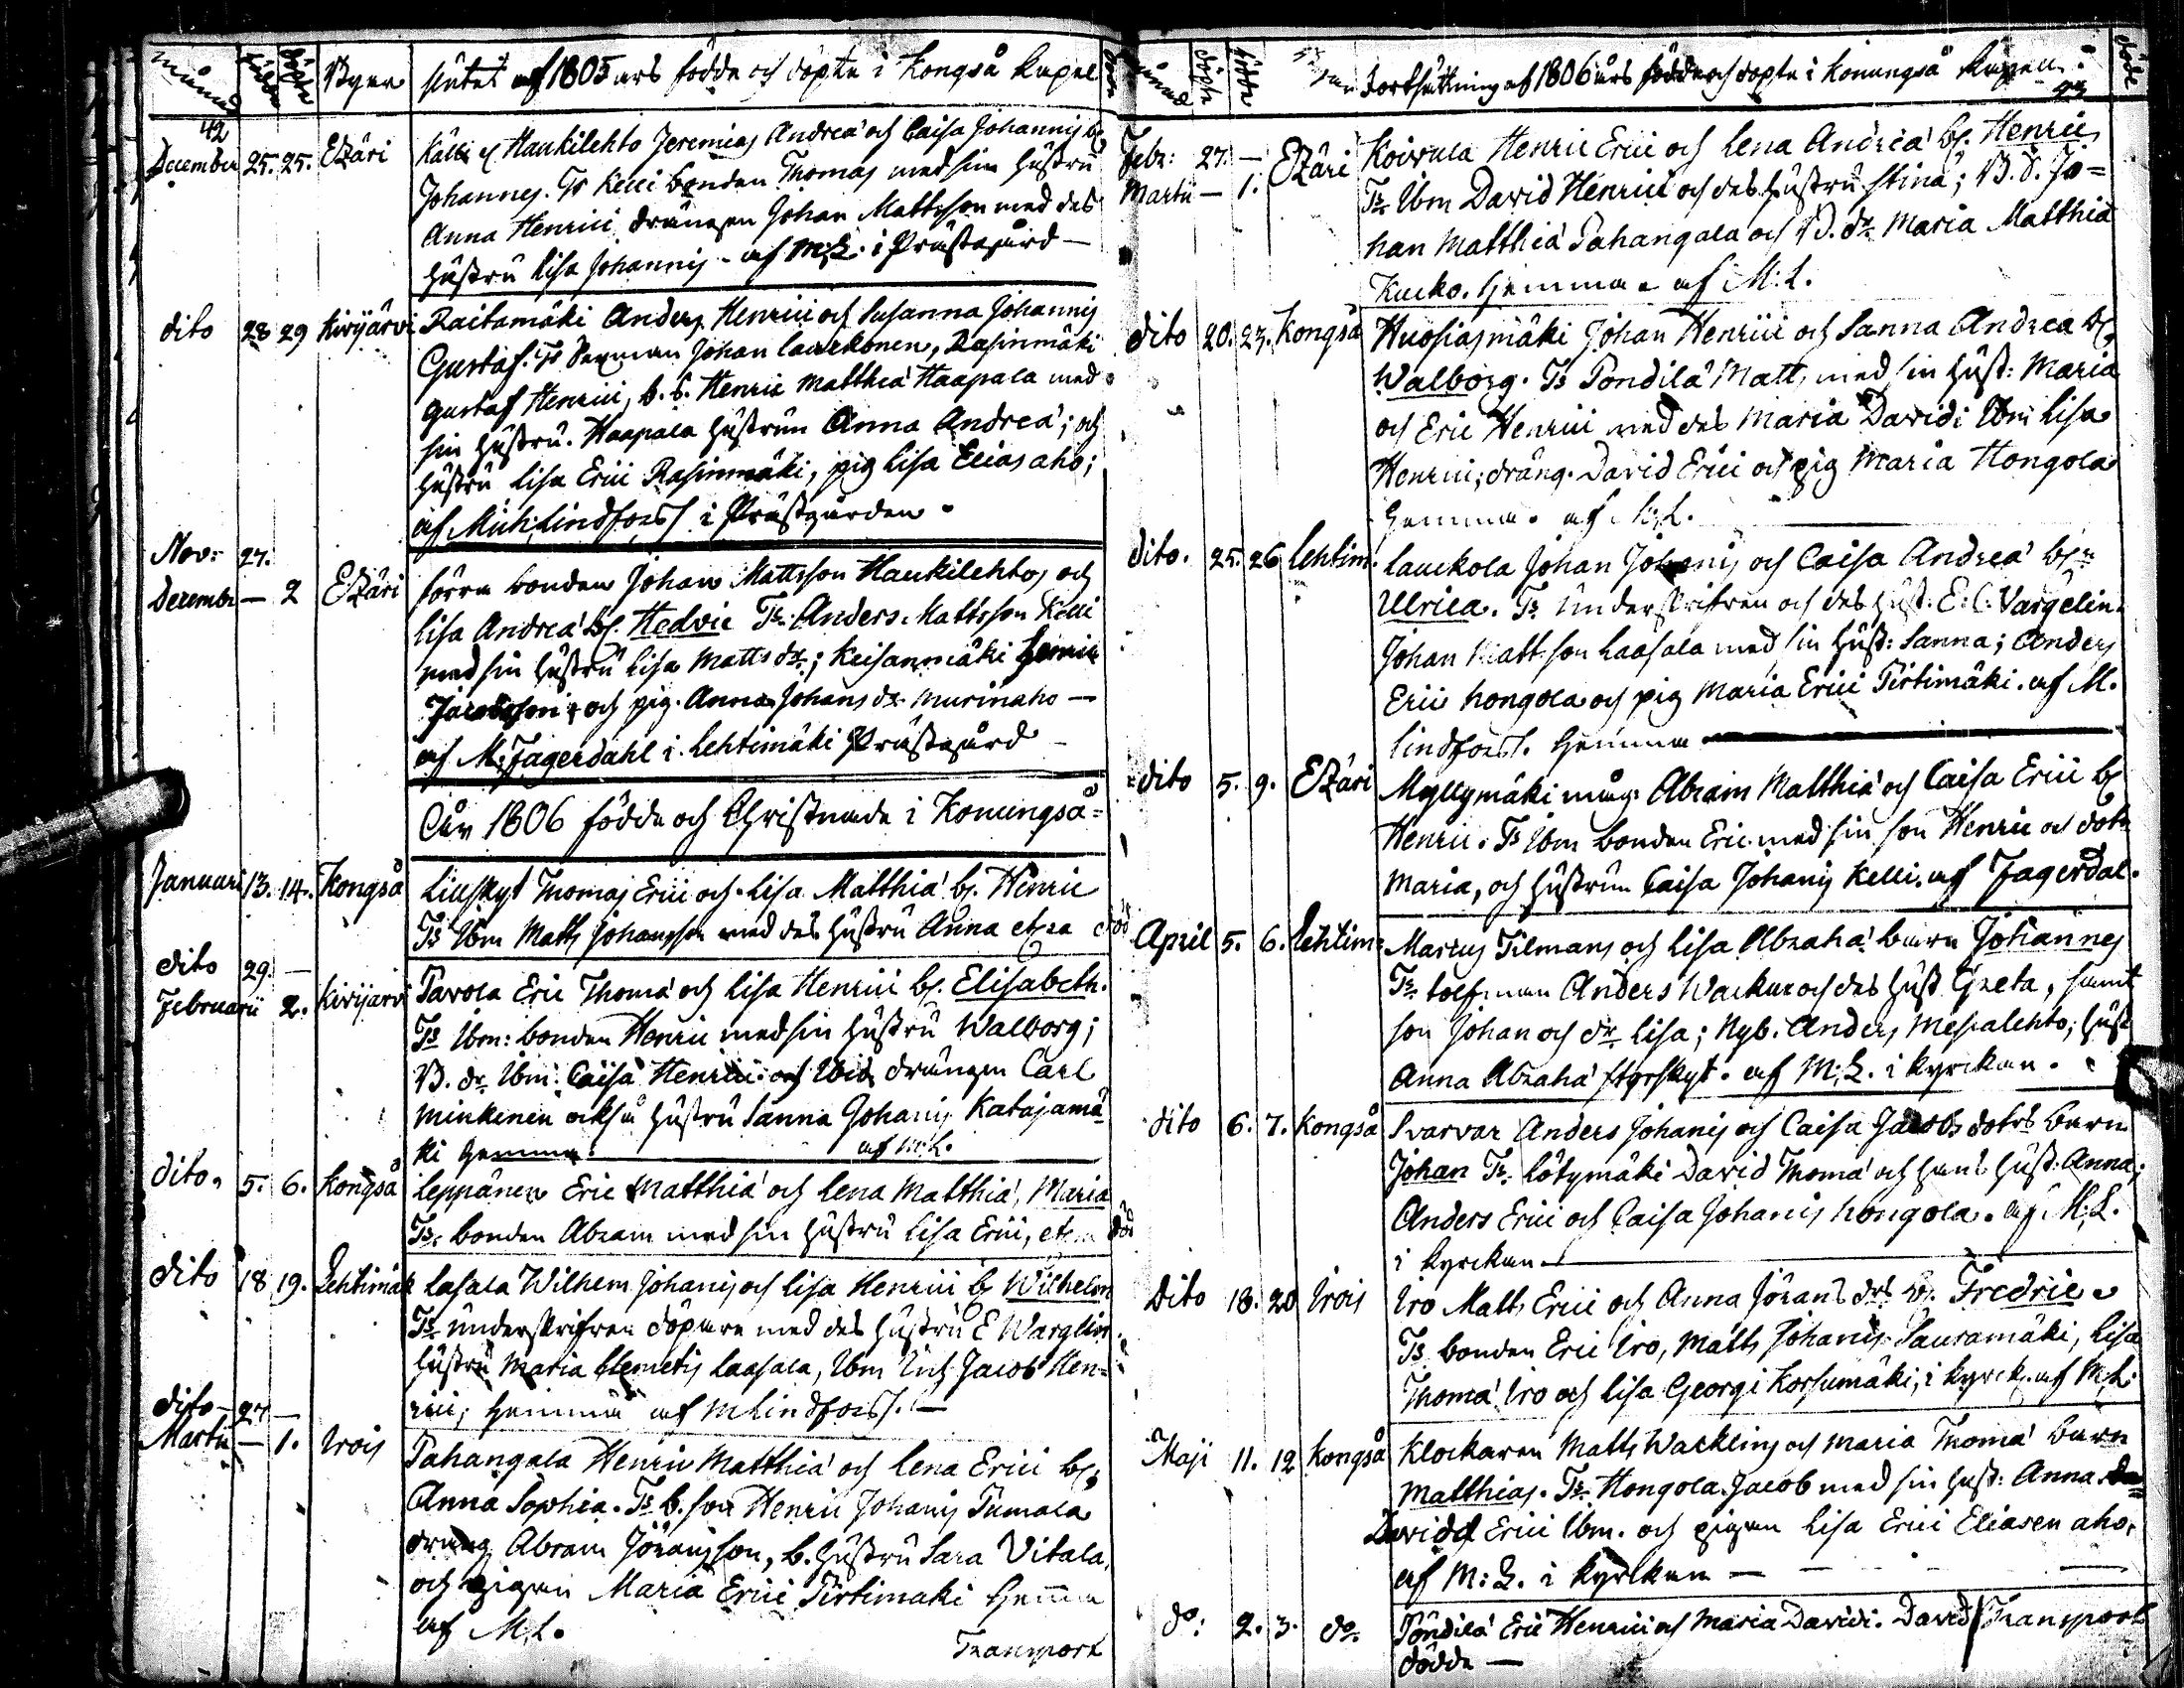 månad födde döpte Byar slutet af 1805 års födde och döpte i Kongså Kapel
42
December 25. 25. Etzäri Källi el Haukilehto Jeremias Andreæ och Caisa Johannis b.
Johannes. Ts Kelli bonden Thomas med sin hustru
Anna Henrici drängen Johan Mattsson med des
hustru Lisa Johannis - af M: L. i Prästegård —
dito 28 29 Kivijärvi Raitamäki Anders Henrici och Susanna Johannis
Gustaf. Ts Sexman Johan Laurkonen, Rasinmäki
Gustaf Henrici, b. s. Henric Matthiæ Haapala med
sin hustru. Haapala hustrun Anna Andreæ; och
hustru Lisa Erici Rasinmäki, pig Lisa Elias aho;
af Mich: Lindforss i Prästgården.
Nov: 27.
Decembr — 2 Etzäri förra bonden Johan Mattsson Haukilehto, och
Lisa Andreæ b. Hedvic Ts. Anders Mattsson Kelli
med sin hustru Lisa Matts dr; Keisanmäki Henric
Jacobsson och pig. Anna Johans dr Murinaho —
af M: Fagerdahl i Lehtimäki Prästegård —
År 1806 födde och Christnade i Konungså
Januari 13. 14. Kongså Lillskyt Thomas Erici och Lisa Matthiæ b. Henric
Ts Ibm Matts Johansson med des hustru Anna död
dito 29. —
Februarii 2. Kivijarvi Pavola Eric Thomæ och Lisa Henrici b. Elisabeth.
Ts Ibm: bonden Henric med sin hustru Walborg;
B. dr Ibm. Caisa Henrici och Ibid drängen Carl
Minkinen också hustru Sanna Johanis Katajamä
ki hemma. af M: L.
dito. 5. 6. Kongså Leppänen Eric Matthiæ och Lena Matthiæ, Maria
Ts. bonden Abram med sin hustru Lisa Erici, död
dito 18 19. Lehtimäk Lasala Wilhem Johanis och Lisa Henrici b Wilhelm
Ts underskrifven döpare med des hustru E Warglin
hustru Maria Clemetis Laasala, Ibm Jacob Hen-
rici; hemma af M Lindforss. —
dito — 27 —
Martii — 1. Irois Pahangala Henric Matthiæ och Lena Erici b.
Anna Sophia. Ts b. son Henric Johanis Tumala
dräng Abram Jöransson, b. hustru Sara Vitala,
och pigan Maria Erici Pirtimaki hemma
af M. L.
Transport
månad döpte födde Fortsättning af 1806 års födde och döpte i Konungså Kapell. döde
Febr: 27. —
Martii — 1. Etzäri Koivula Henric Erici och Lena Andreæ b. Henric
Ts Ibm David Henrici och des hustru Stina; B. d. Jo=
han Matthiæ Pahangala och B. dr Maria Matthiæ
Kucko. hemma af M: L.
dito 20. 23. Kongså Huosiasmäki Johan Henrici och Sanna Andreæ b.
Walborg. Ts Pondilä Matts med sin hust: Maria
och Eric Henrici med des Maria Davidi Ibm Lisa
Henrici; dräng. David Erici och pig Maria Hongola
hemma. af M: L.
dito. 25. 26 Lehtim. Lauckola Johan Johanis och Caisa Andreæ b.
Ulrica. Ts Underskrifven och des hust. E: C: Vargelin.
Johan Mattsson Laasala med sin hust: Sanna; Anders
Erici Hongola och pig Maria Erici Pirtimäki. af M.
Lindforss. hemma
dito 5. 9. Etzäri Myllymäki måg: Abram Matthiæ och Caisa Erici b
Henric. Ts Ibm bonden Eric med sin son Henric och dotr
Maria, och hustrun Caisa Johanis Kelli. af Fagerdal.
April 5. 6. Lehtim: Marcus Tilmans och Lisa Abrahæ barn Johannes
Ts. tolfman Anders Wackar och des hust Greta, samt
son Johan och dr Lisa; Nyb. Anders Mesialehto; hust
Anna Abrahæ Styfskyt. af M: L. i kyrckan.
dito 6. 7. Kongså Svarvar Anders Johanis och Caisa Jacobs dotrs barn
Johan Ts. Lötymäki David Thomæ och hans hust: Anna;
Anders Erici och Caisa Johanis Hongola. af M: L.
i kyrckan
Dito 18. 20 Irois Iro Matts Erici och Anna Jörans drs b. Fredric
Ts bonden Eric Iro, Matts Johanis Sauramäki, Lisa
Thomæ Iro och Lisa Georgi Korsumäki, i kyrck. af M: L.
Maji 11. 12 Kongså Klockaren Matts Wacklins och Maria Thomæ barn
Matthias. Ts Hongola Jacob med sin hust: Anna
David Erici Ibm. och pigan Lisa Erici Eliasen aho.
af M: L. i kyrckan —
do: 2. 3. do. Pöndilä Eric Henrici och Maria Davidi. David Transport
dödde —